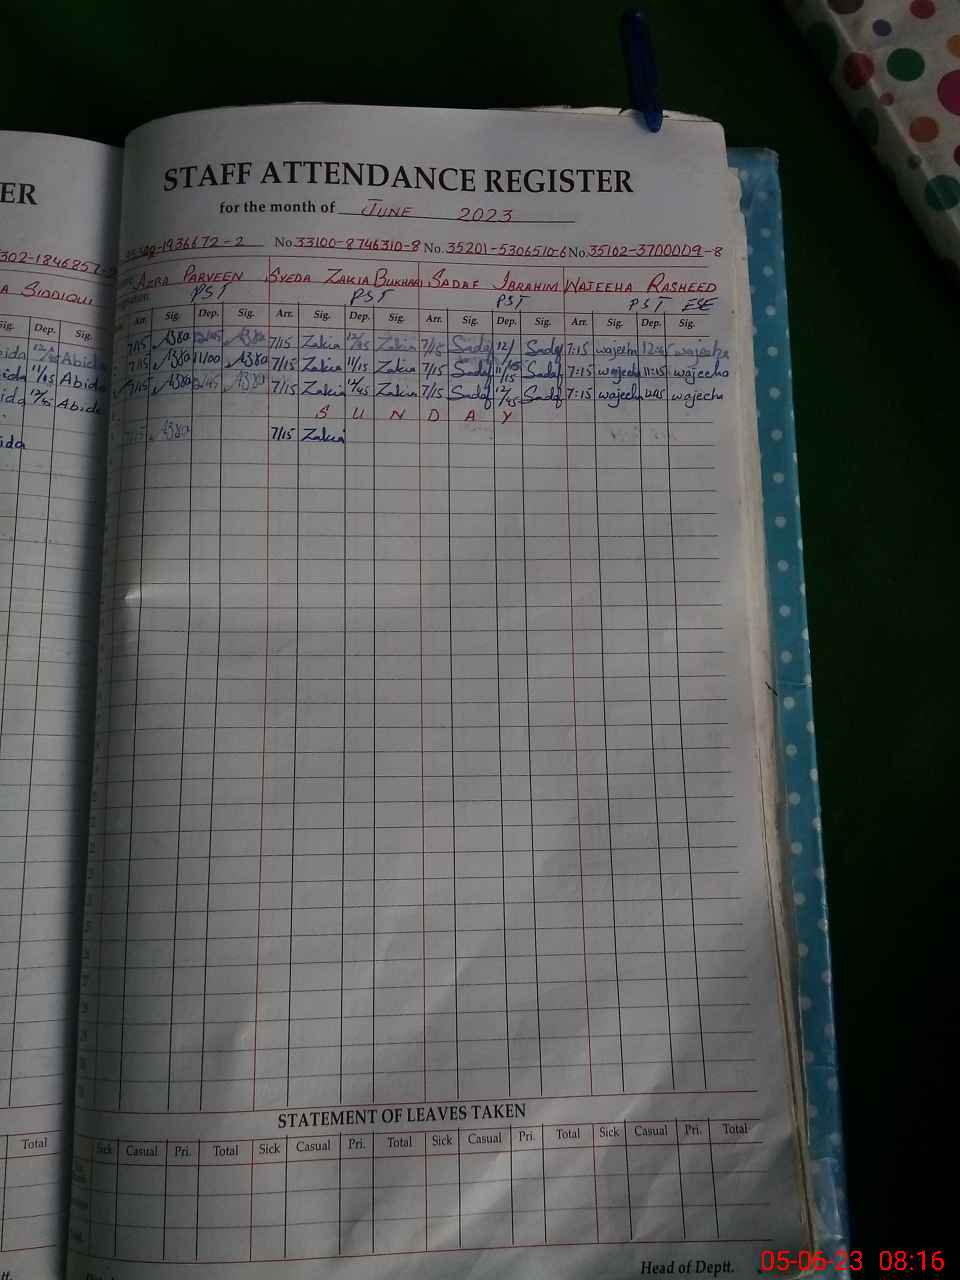 ER
STAFF ATTENDANCE REGISTER
for the month of JUNE 2023
302-1846857-
-1936672-2 No. 33100-8746310-8 No. 35201-5306510-6 No. 35102-3700009-8
A SIDDIQUI
AZRA PARVEEN SYEDA ZAKIA BUKHARI SADAF IBRAHIM WAJEEHA RASHEED
PST PST PST PST ESE
Sig. Dep. Sig. Arr. Sig. Dep. Sig. Arr. Sig. Dep. Sig. Arr. Sig. Dep. Sig. Arr. Sig. Dep. Sig.
eida 12/45 Abida 7/15 Azra 12/45 Azra 7/15 Zakia 12/45 Zakia 7/15 Sadaf 12/ Sadaf 7:15 wajeeha 12:45 wajeeha
ida 11/15 Abida 7/15 Azra 11/00 Azra 7/15 Zakia 11/15 Zakia 7/15 Sadaf 11/15 Sadaf 7:15 wajeeha 11:15 wajeeha
ida 12/45 Abida 7/15 Azra 12/45 Azra 7/15 Zakia 12/45 Zakia 7/15 Sadaf 12/45 Sadaf 7:15 wajeeha 12:45 wajeeha
S U N D A Y
ida 7/15 Azra 7/15 Zakia
STATEMENT OF LEAVES TAKEN
Total Sick Casual Pri. Total Sick Casual Pri. Total Sick Casual Pri. Total Sick Casual Pri. Total
Head of Deptt.
05-06-23 08:16